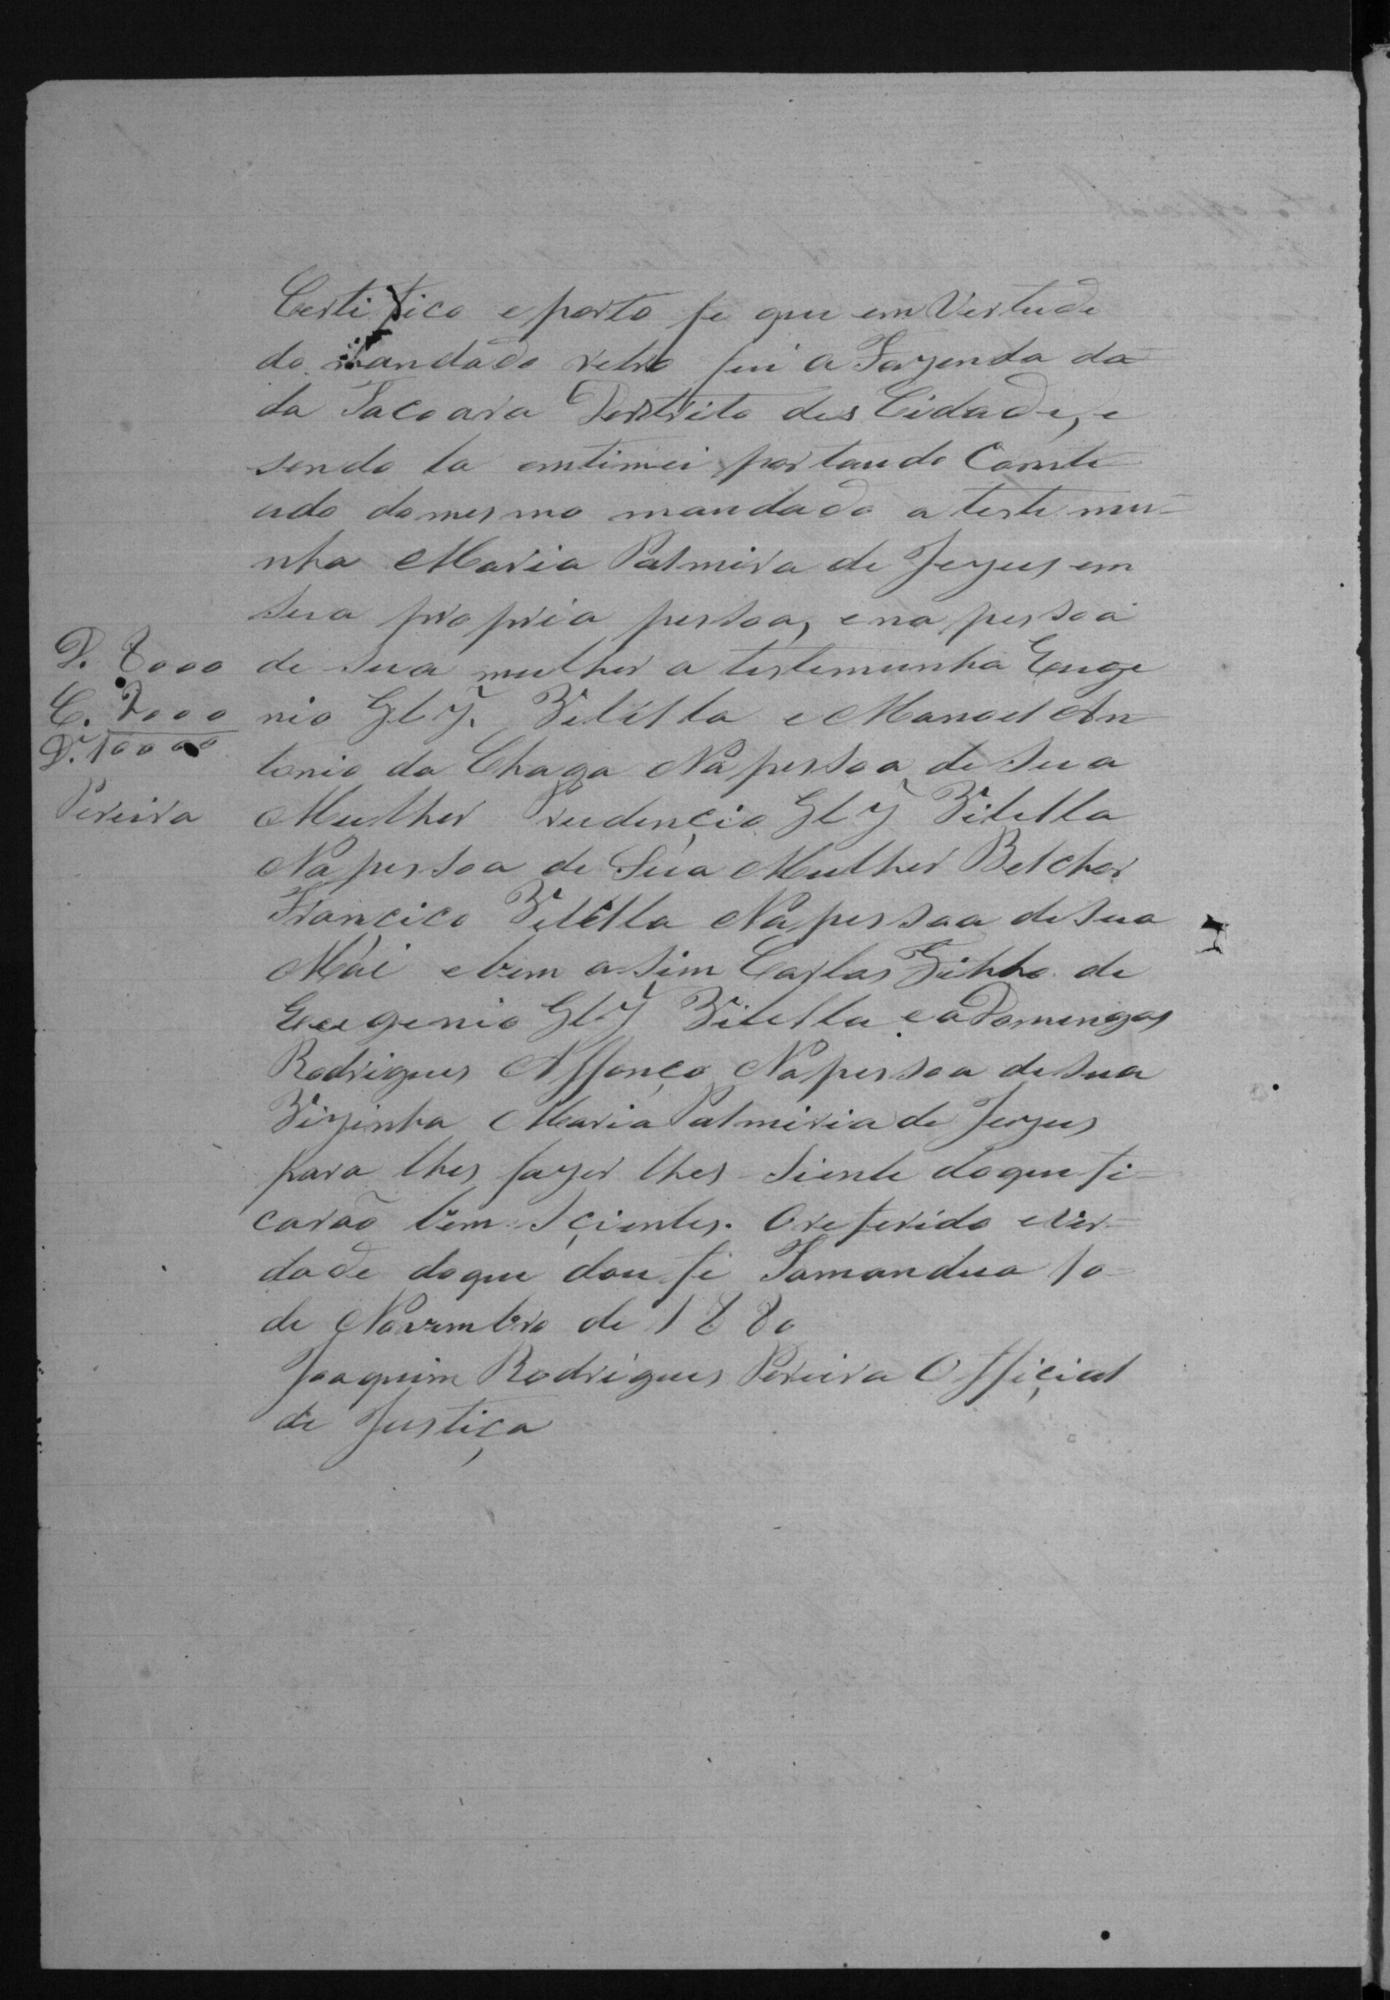 Certifico e porto fe que em Vertude
do mandado retro fui a Fazenda da
da Tacoara Destrito des Cidade, e
sendo la emtimei por taudo Comte
udo domesmo mandado a testemu-
nha Maria Palmira de Jezus em
sua propria pessoa, e na pessoa
de Sua mulher a testemunha Euge
nio Glz. Vilella e Manoel An
tonio da Chaga Na pessoa de Sua
Mulher Prudençio Glz Vilella
Na pessoa de Sua Mulher Belchor
Françico Vilella Na pessoa de Sua
Mãi e bem a Sim Carlos Filho de
Eugenio Glz Vilella e a Domingos
Rodrigues Affonço Na pessoa de sua
Vizinha Maria Palmiria de Jezus
para lhes fazer lhes Siente do que fi-
carão bem Sçientes. O referido e ver-
dade do que dou fe Tamandua 10
de Novembro de 1880
Joaquim Rodrigues Pereira Offiçial
de Justiça
D. 8000
C. 2000
D. 10000
Pereira